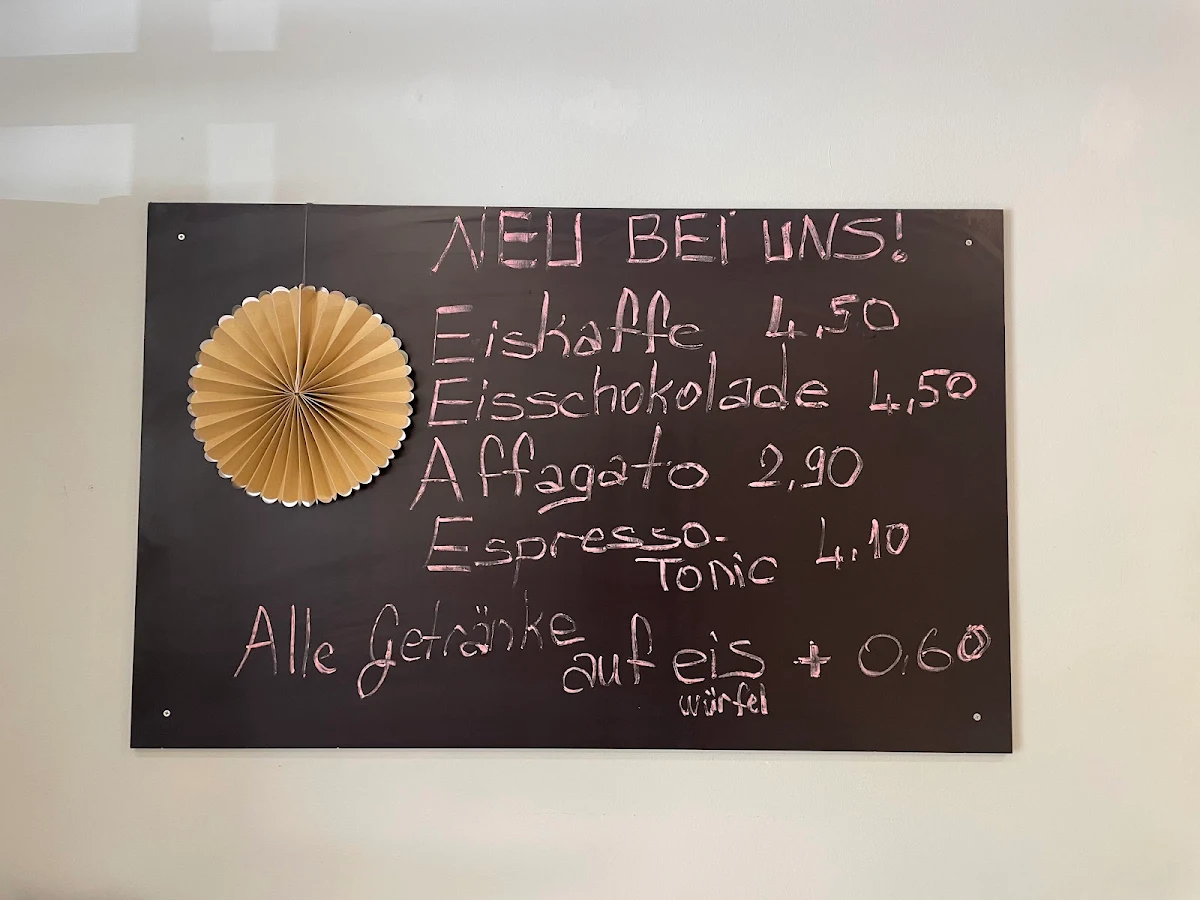 NEU BEI UNS!
Eiskaffe 4,50
Eisschokolade 4,50
Affagato 2,90
Espresso-
Tonic 4,10
Alle Getränke
auf eis + 0,60
würfel